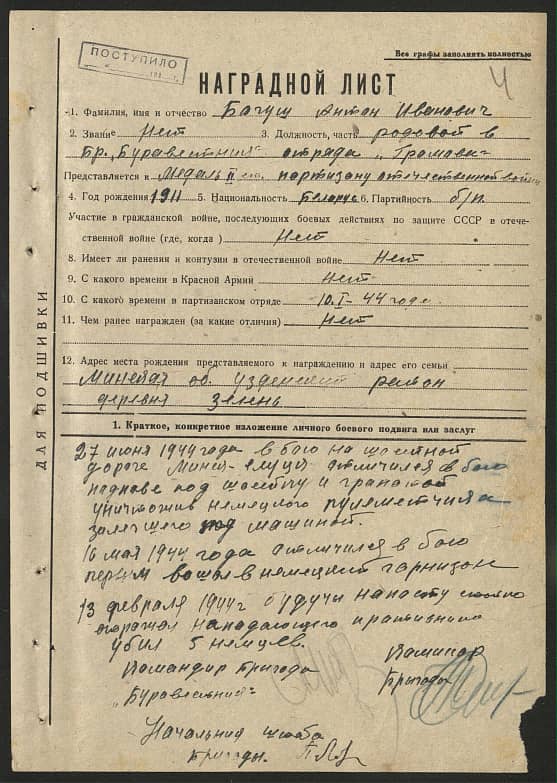 ПОСТУПИЛО
Все графы заполнять полностью
4
НАГРАДНОЙ ЛИСТ
1. Фамилия, имя и отчество Багуш Антон Иванович
2. Звание Нет 3. Должность, часть родовой в
бр. "Буравестник" отряда "Громова"
Представляется к Медаль II ст. партизану отечественной войны
4. Год рождения 1911 5. Национальность Белорус 6. Партийность б/п.
Участие в гражданской войне, последующих боевых действиях по защите СССР в отече-
ственной войне (где, когда) Нет
8. Имеет ли ранения и контузии в отечественной войне Нет
9. С какого времени в Красной Армии Нет
10. С какого времени в партизанском отряде 10.I-44 года.
11. Чем ранее награжден (за какие отличия) Нет
12. Адрес места рождения представляемого к награждению и адрес его семьи
Минская об. Узденский район
деревня Зелень
ДЛЯ ПОДШИВКИ
1. Краткое, конкретное изложение личного боевого подвига или заслуг
27 июня 1944 года в бою на шоссной
дороге Минск-Слуцк отличился в бою
под и гранатой
уничтожив немецкого пулеметчика
залегшего под машиной.
16 мая 1944 года отличился в бою
первым вошел в немецкий гарнизон
13 февраля 1944 г будучи на посту
отражая нападающего противника
убил 5 немцев.
Командир бригады
"Буравестник"
Комисар
бригады
Начальник штаба
бригады.